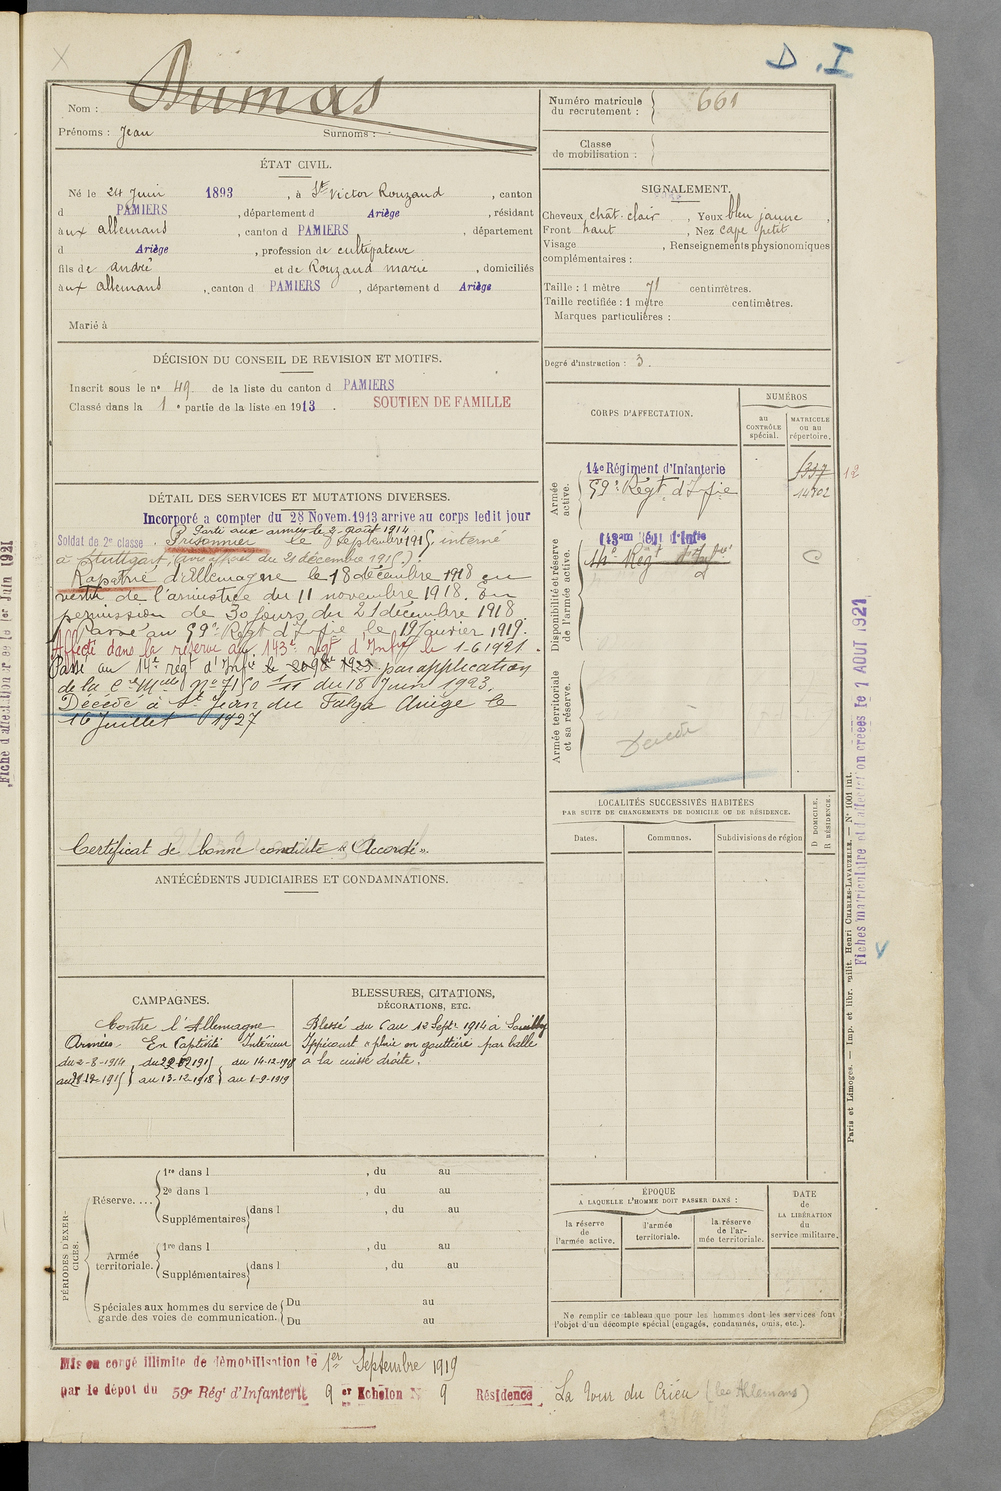 D. I
Dumas
Nom :
Prénoms : Jean Surnoms :
ÉTAT CIVIL.
Né le 24 Juin 1893, à St Victor Rouzaud, canton
d PAMIERS, département d Ariège, résidant
aux allemans, canton d PAMIERS, département
d Ariège, profession de cultivateur
fils de andré et de Rouzaud marie, domiciliés
aux allemans, canton d PAMIERS, département d Ariège
Marié à
DÉCISION DU CONSEIL DE REVISION ET MOTIFS.
Inscrit sous le no 49 de la liste du canton d PAMIERS
Classé dans la 1 e partie de la liste en 1913.
SOUTIEN DE FAMILLE
DÉTAIL DES SERVICES ET MUTATIONS DIVERSES.
Incorporé a compter du 28 Novem. 1913 arrive au corps ledit jour
Parti aux armées le 2 août 1914
Soldat de 2e classe. Prisonnier le 8 septembre 1915, interné
à Stuttgart, (avis officiel du 21 décembre 1915)
Rapatrié d'Allemagne le 18 décembre 1918 en
vertu de l'armistice du 11 novembre 1918. En
permission de 30 jours du 21 décembre 1918
Passé au 59e Régt d'Ifie, le 19 Janvier 1919.
Affecté dans la réserve au 143e régt d'Infie le 1-6 1921.
Passé au 14e régt d'Infie par application
de la Cre Mlle No 7150 1/11 du 18 Juin 1923.
Décédé à St Jean du Falga Ariège le
16 Juillet 1927
Certificat de bonne conduite « Accordé ».
ANTÉCÉDENTS JUDICIAIRES ET CONDAMNATIONS.
CAMPAGNES.
Contre l'Allemagne
Armées En Captivité Intérieur
du 2-8-1914, du 1915 du 14-12-1918
au 1915 au 13-12-1918 au 1-9-1919
BLESSURES, CITATIONS,
DÉCORATIONS, ETC.
Blessé du 6 au 12 Sept. 1914 à Souilly
Ippécourt « plaie en gouttière par balle
a la cuisse droite.
PÉRIODES D'EXERCICES.
Réserve....
1re dans l , du au
2e dans l , du au
Supplémentaires dans l , du au
Armée territoriale.
1re dans l , du au
Supplémentaires dans l , du au
Spéciales aux hommes du service de garde des voies de communication.
Du au
Du au
Mis en congé illimité de démobilisation le 1er Septembre 1919
par le dépôt du 59e Régt d'Infanterie 9 er Echelon No 9 Résidence La Tour du Crieu (les Allemans)
Numéro matricule
du recrutement : 661
Classe
de mobilisation :
SIGNALEMENT.
Cheveux chât. clair, Yeux bleu jaune,
Front haut, Nez cave petit
Visage , Renseignements physionomiques
complémentaires :
Taille : 1 mètre 71 centimètres.
Taille rectifiée : 1 mètre centimètres.
Marques particulières :
Degré d'instruction : 3.
CORPS D'AFFECTATION.
NUMÉROS
au
CONTRÔLE
spécial.
MATRICULE
ou au
répertoire.
Armée
active.
14e Régiment d'Infanterie
59e Régt d'Ifie
14702
12
Disponibilité et réserve
de l'armée active.
C
Armée territoriale
et sa réserve.
Décédé
LOCALITÉS SUCCESSIVES HABITÉES
PAR SUITE DE CHANGEMENTS DE DOMICILE OU DE RÉSIDENCE.
Dates.
Communes.
Subdivisions de région
D DOMICILE.
R RÉSIDENCE.
ÉPOQUE
A LAQUELLE L'HOMME DOIT PASSER DANS :
la réserve
de
l'armée active.
l'armée
territoriale.
la réserve
de l'ar-
mée territoriale.
DATE
de
LA LIBÉRATION
du
service militaire.
Ne remplir ce tableau que pour les hommes dont les services font
l'objet d'un décompte spécial (engagés, condamnés, omis, etc.).
Paris et Limoges. — Imp. et libr. milit. Henri CHARLES-LAVAUZELLE. — No 1001 int.
Fiches matriculaire et d'affectation créées le 1 AOUT 1921
Fiche d'affectation créée le 1er Juin 1921